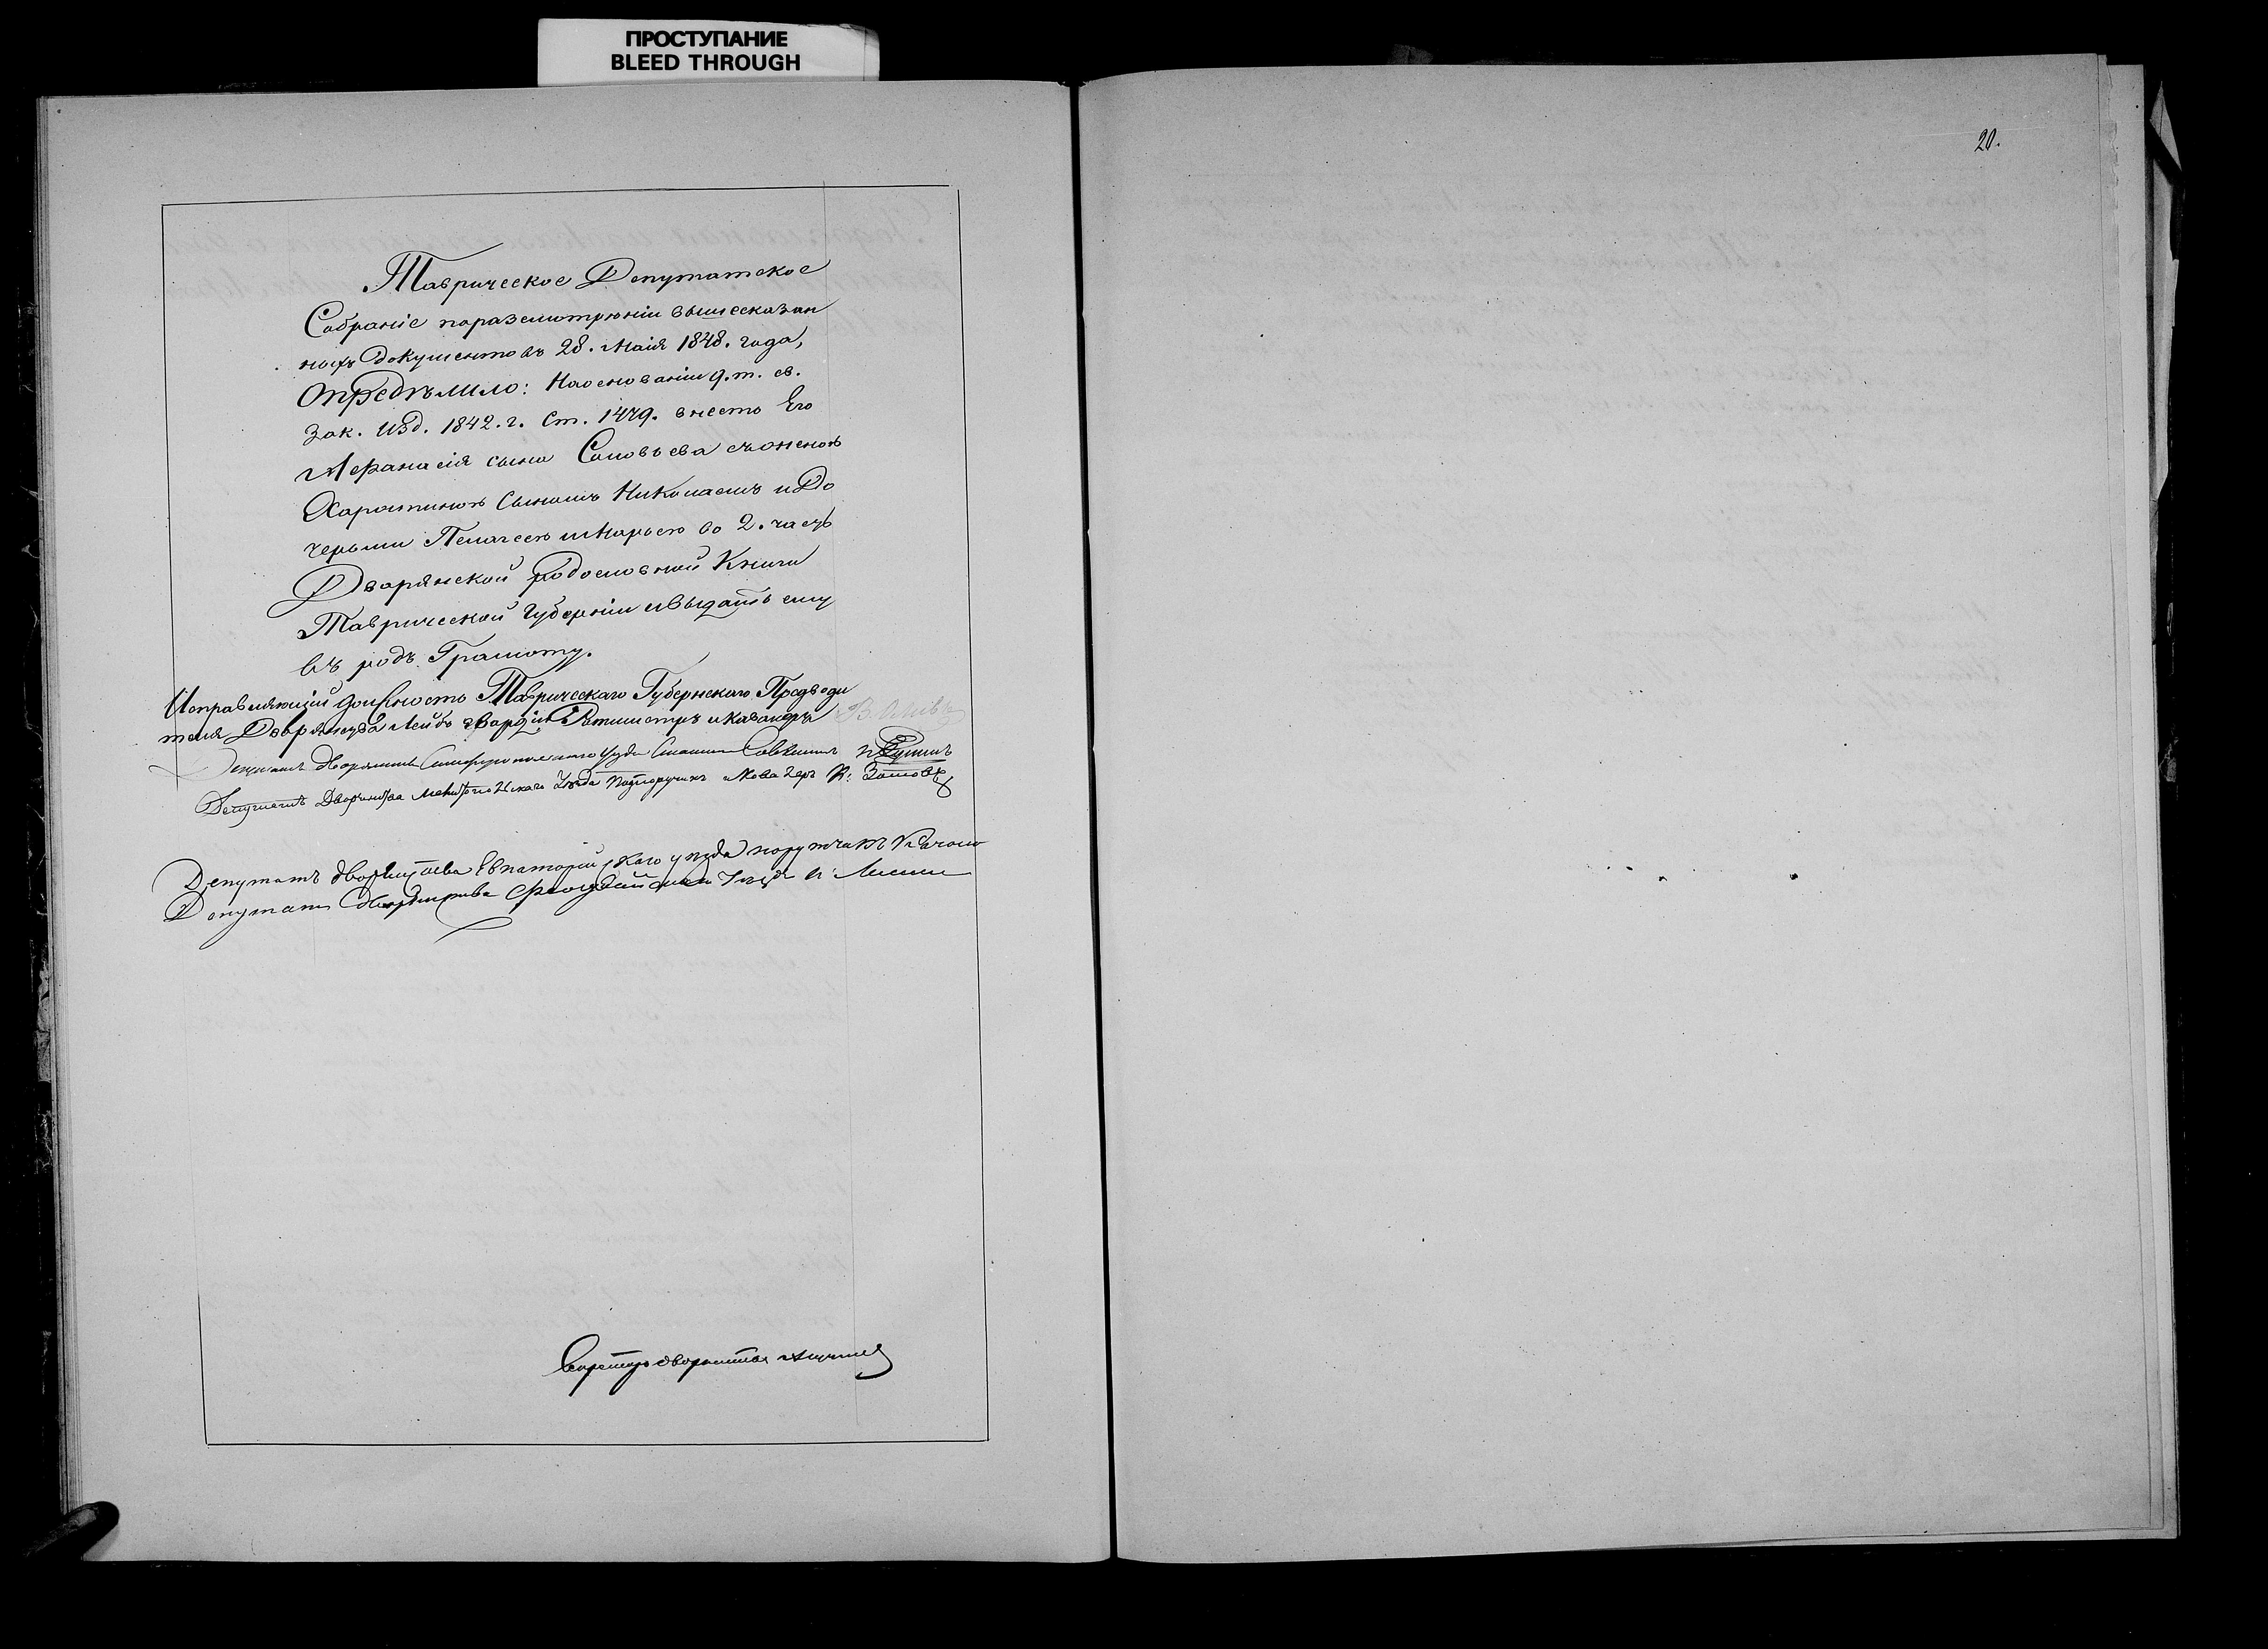 ПРОСТУПАНИЕ
BLEED THROUGH
20.
Таврическое Депутатское
Собраніе поразсмотрѣніи вышесказан
ныхъ документовъ 28. Маія 1848. года,
Опредѣлило: Наоснованіи 9. т. св.
Зак. Изд. 1842. г. Ст. 1479. внесть Его
Афанасія сына Соловьева съженою
Харитиною Сыномъ Николаемъ и До
черьми Пелагеею иМарьею во 2. часть
Дворянской родословной Книги
Таврической Губерніи ивыдать ему
въ родъ Грамоту.
Исправляющій должность Таврическаго Губернскаго Предводи
теля Дворянства Лейбъ гвардіи Ротмистръ и кавалеръ
Депутатъ дворянства Симферопольскаго Уѣзда
Депутатъ Дворянства Мелитопольскаго Уѣзда Подпоручикъ и Кавалеръ
Депутатъ дворянства Евпаторійскаго уѣзда поручикъ
Депутатъ дворянства Феодосійскаго Уѣзда
Секретарь дворянства